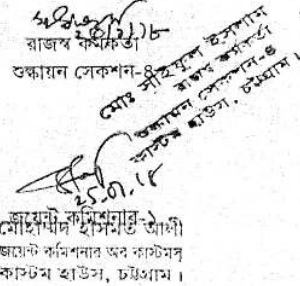 রাজস্ব কর্মকর্তা
শুল্কায়ন সেকশন-৪
মোঃ সাইফুল ইসলাম
রাজস্ব কর্মকর্তা
শুল্কায়ন সেকশন-৪
কাস্টম হাউস, চট্টগ্রাম।
২৫.০১.১৮
জয়েন্ট কমিশনার-১
মোহাম্মদ হাসমত আলী
জয়েন্ট কমিশনার অব কাস্টমস্
কাস্টম হাউস, চট্টগ্রাম।